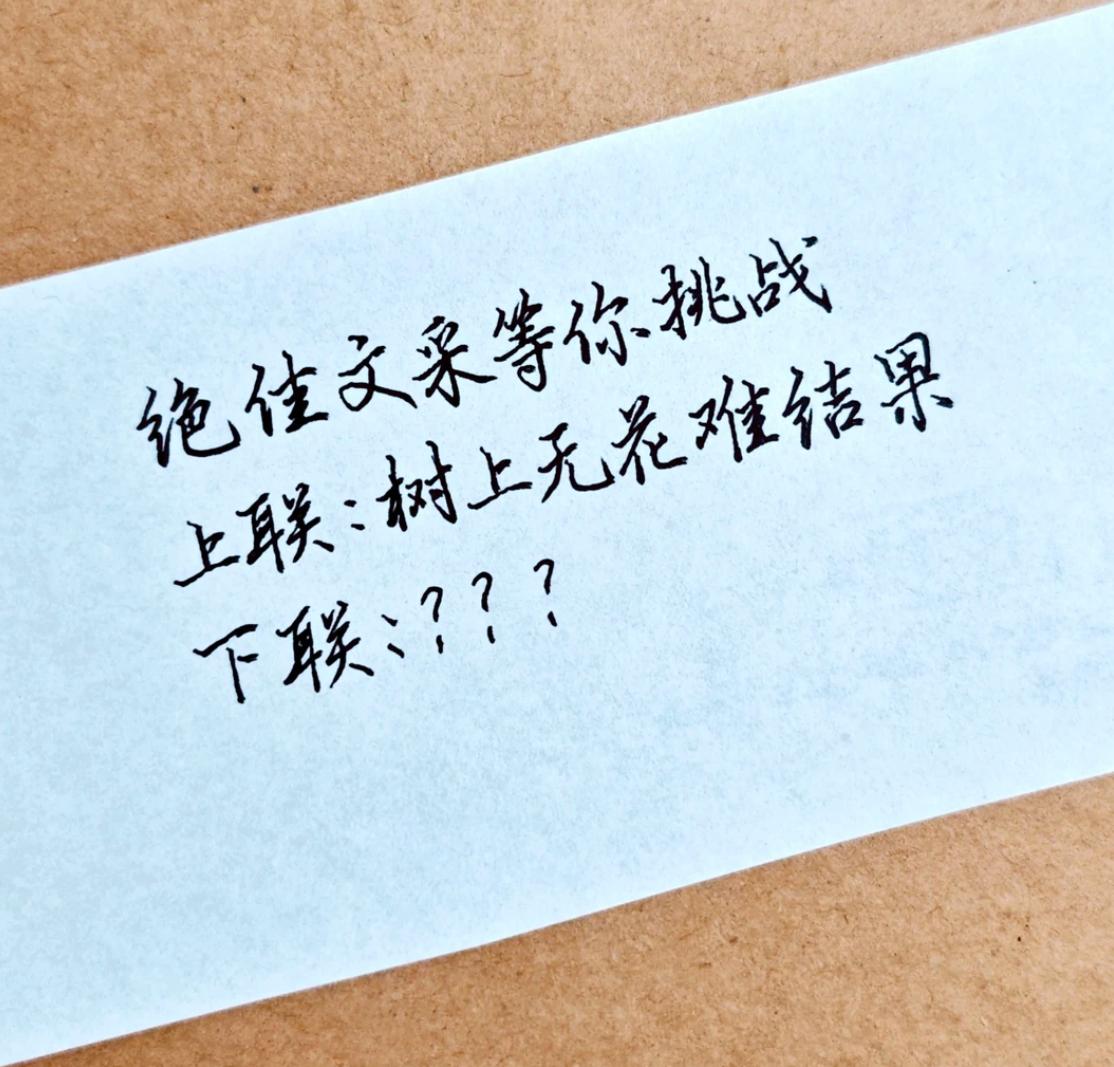 绝佳文采等你挑战
上联:树上无花难结果
下联:???